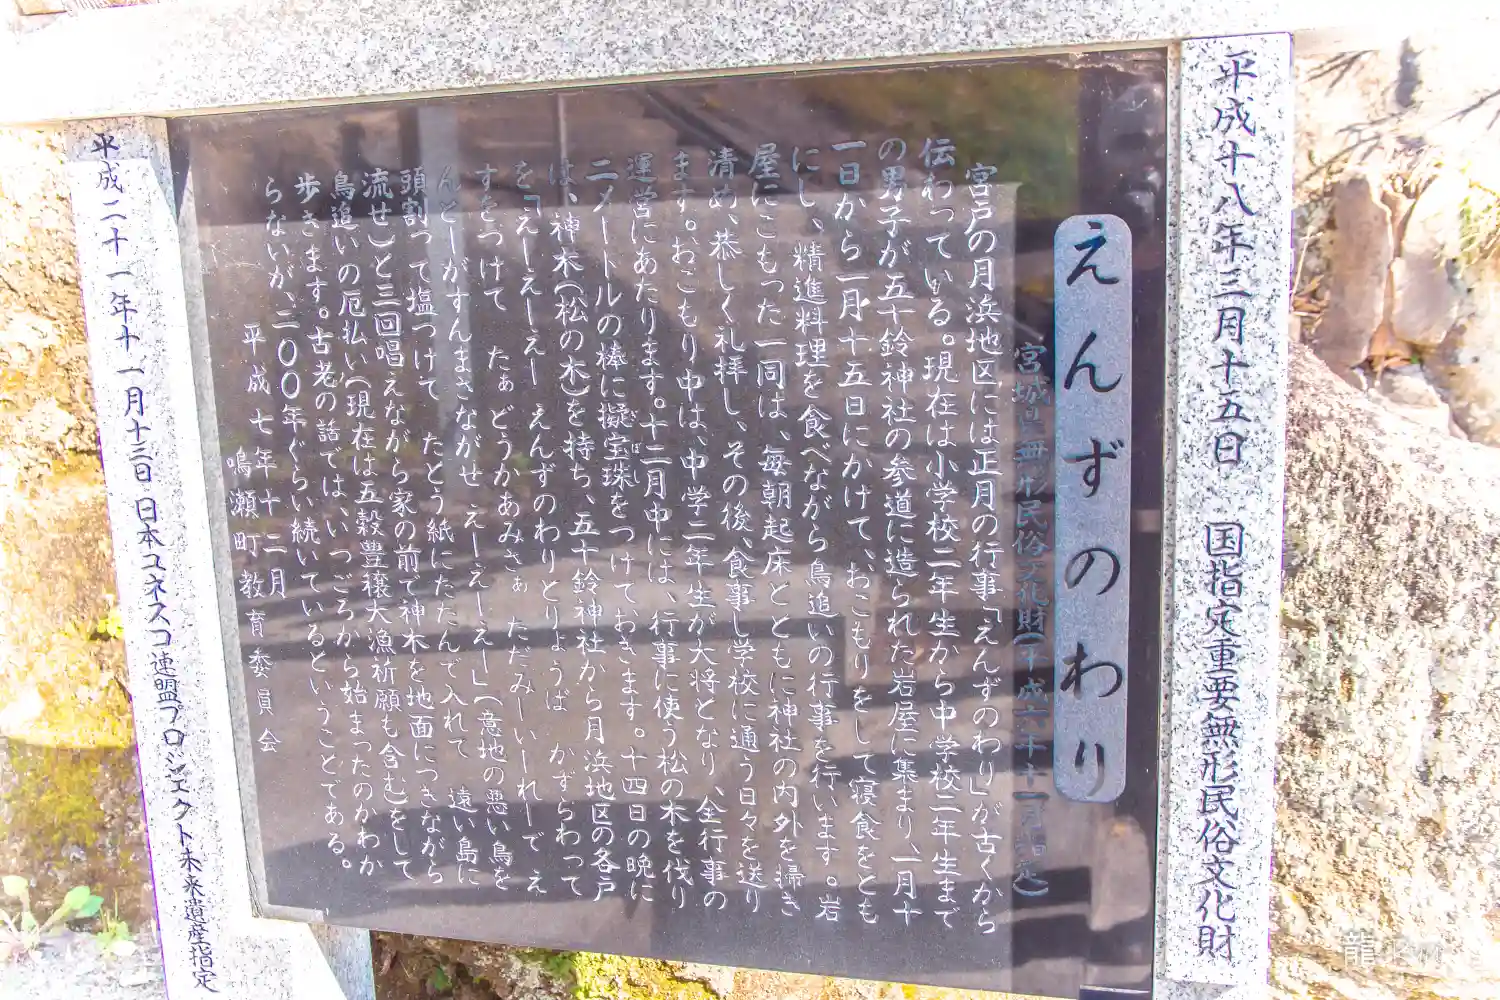 平成十八年三月十五日　国指定重要無形民俗文化財
えんずのわり
宮城県無形民俗文化財(平成六年十一月指定)
宮戸の月浜地区には正月の行事「えんずのわり」が古くから
伝わっている。現在は小学校二年生から中学校二年生まで
の男子が五十鈴神社の参道に造られた岩屋に集まり、一月十
一日から一月十五日にかけて、おこもりをして寝食をとも
にし、精進料理を食べながら鳥追いの行事を行います。岩
屋にこもった一同は、毎朝起床とともに神社の内外を掃き
清め、恭しく礼拝し、その後、食事し学校に通う日々を送り
ます。おこもり中は、中学二年生が大将となり、全行事の
運営にあたります。十二月中には、行事に使う松の木を伐り
二メートルの棒に擬宝珠をつけておきます。十四日の晩に
ぎぼし
は、神木(松の木)を持ち、五十鈴神社から月浜地区の各戸
を「えーえーえー　えんずのわりとりょうば　かずらわって
すをつけて　たぁどうかあみさぁ　ただみーいーれーで　え
んどーがすんまさながせ　えーえーえー」(意地の悪い鳥を
頭割って塩つけて　たとう紙にたたんで入れて　遠い島に
流せ)と三回唱えながら家の前で神木を地面につきながら
鳥追いの厄払い(現在は五穀豊穣大漁祈願も含む)をして
歩きます。古老の話では、いつごろから始まったのかわか
らないが、二〇〇年ぐらい続いているということである。
平成七年十二月
鳴瀬町教育委員会
平成二十一年十一月十三日 日本ユネスコ連盟プロジェクト未来遺産指定
龍